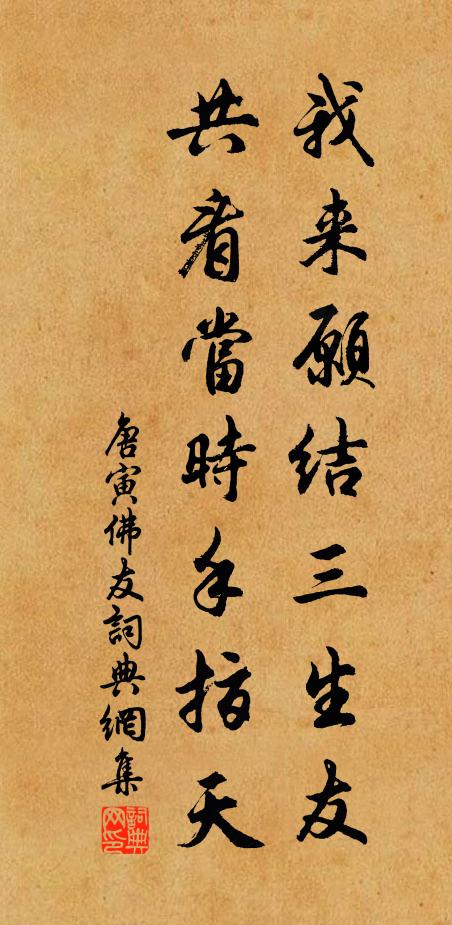 我来願結三生友
共看當時手指天
唐寅佛友詞典網集
詞典网印